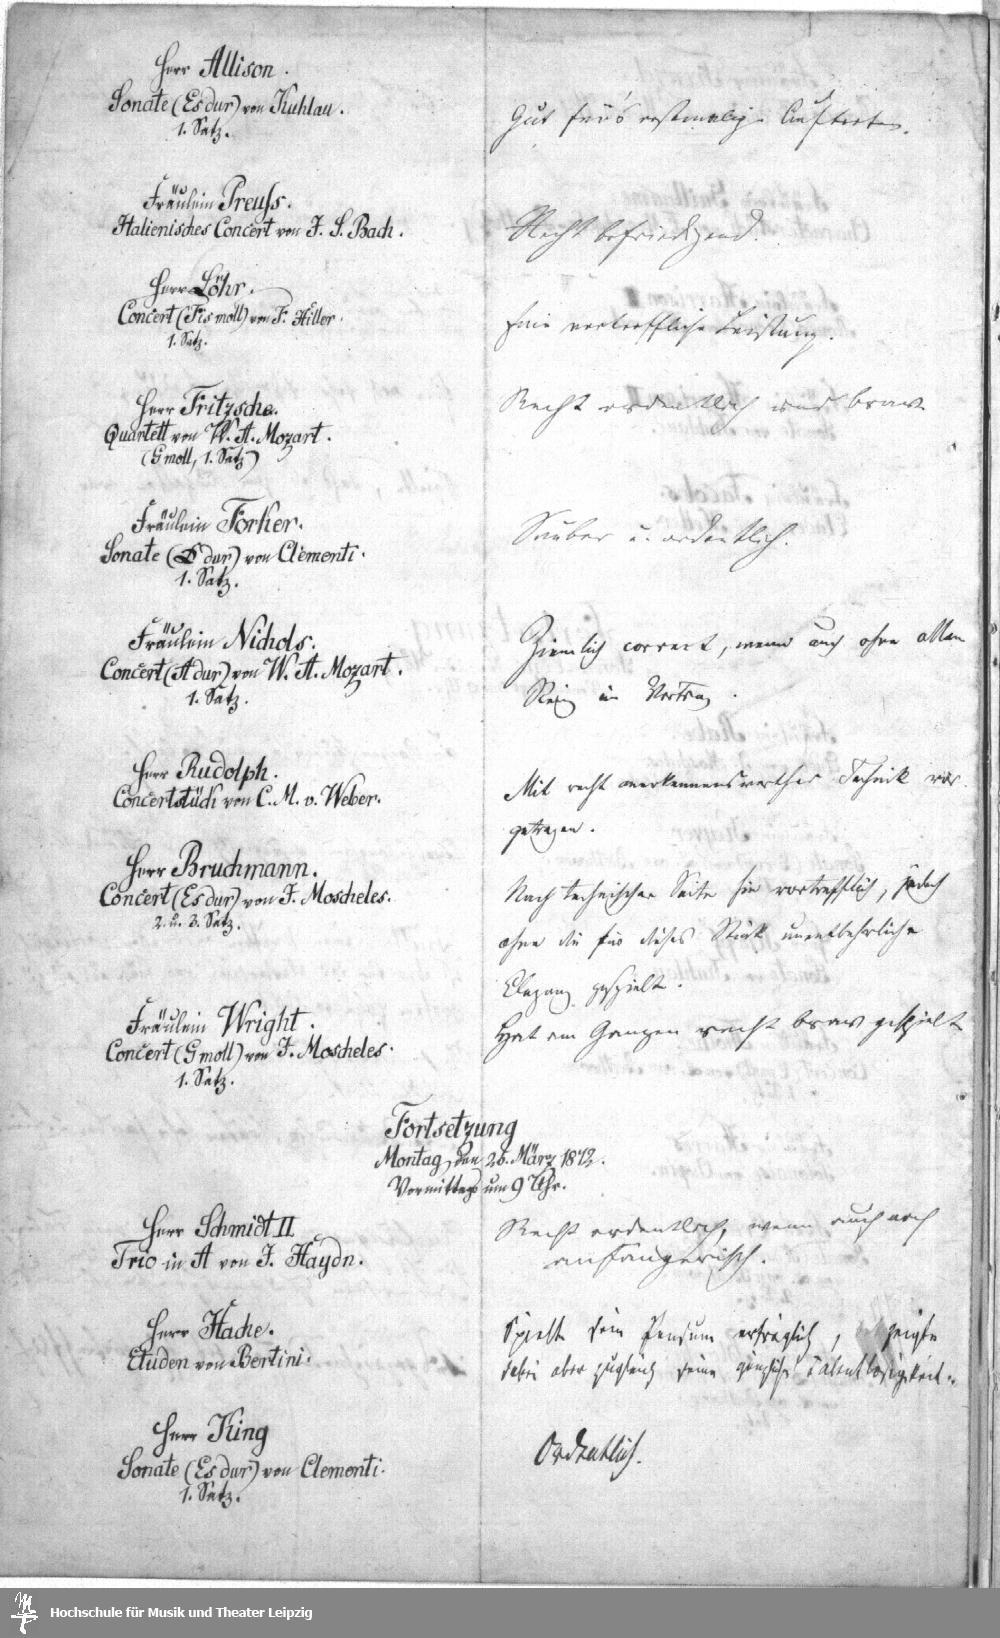 Herr Allison.
Sonate (Es dur) von Kuhlau.
1. Satz.
Gut für's erstmalige Auftreten.
Fräulein Preuss.
Italienisches Concert von J. S. Bach.
Recht befriedigend.
Herr Löhr.
Concert (Fis moll) von F. Hiller.
1. Satz.
Eine vortreffliche Leistung.
Herr Fritzsche.
Quartett von W. A. Mozart.
(G moll, 1. Satz)
Recht ordentlich und brav
Fräulein Forker.
Sonate (D dur) von Clementi.
1. Satz.
Sauber u. ordentlich.
Fräulein Nichols.
Concert (A dur) von W. A. Mozart.
1. Satz.
Ziemlich correct, wenn auch ohne allen
Reiz im Vortrag.
Herr Rudolph.
Concertstück von C. M. v. Weber.
Mit recht anerkennenswerther Technik vor
getragen.
Herr Bruchmann.
Concert (Es dur) von J. Moscheles.
2. u. 3. Satz.
Nach technischer Seite hin vortrefflich, jedoch
ohne die für dieses Stück unentbehrliche
Eleganz gespielt.
Fräulein Wright.
Concert (G moll) von J. Moscheles.
1. Satz.
Hat im Ganzen recht brav gespielt
Fortsetzung
Montag, den 25. März 1872.
Vormittags um 9 Uhr.
Herr Schmidt II
Trio in A von J. Haydn.
Recht ordentlich, wenn auch noch
anfängerisch.
Herr Hache.
Etuden von Bertini.
Spielte sein Pensum erträglich, zeigte
dabei aber zugleich seine gänzliche Talentlosigkeit.
Herr King
Sonate (Es dur) von Clementi.
1. Satz.
Ordentlich.
Hochschule für Musik und Theater Leipzig